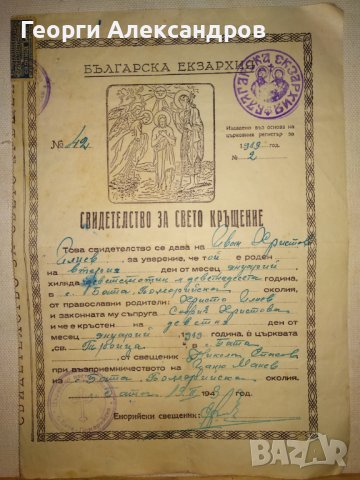 Георги Александров
БЪЛГАРСКА ЕКЗАРХИЯ
БЪЛГАРСКА ЕКЗАРХИЯ
№ 42
Издадено въз основа на
църковния регистър за
1919 год.
№ 2
СВИДЕТЕЛСТВО ЗА СВЕТО КРЪЩЕНИЕ
СВИДЕТЕЛСТВО ЗА СВЕТО КРЪЩЕНИЕ
Това свидетелство се дава на Иван Христов
Илиев за уверение, че той е роден
на втория ден от месец януарий
хиляда деветстотин и деветнадесета година,
в с. Бата Поморийска околия,
от православни родители: Христо Илиев
и законната му съпруга Христова
и че е кръстен на девети ден от
месец януарий 1919 година, в църквата
Св. Троица в с. Бата
от свещеник Никола
при възприемничеството на Манев
от Бата Поморийска околия.
с. Бата 194 год.
Енорийски свещеник:
bazar.bg